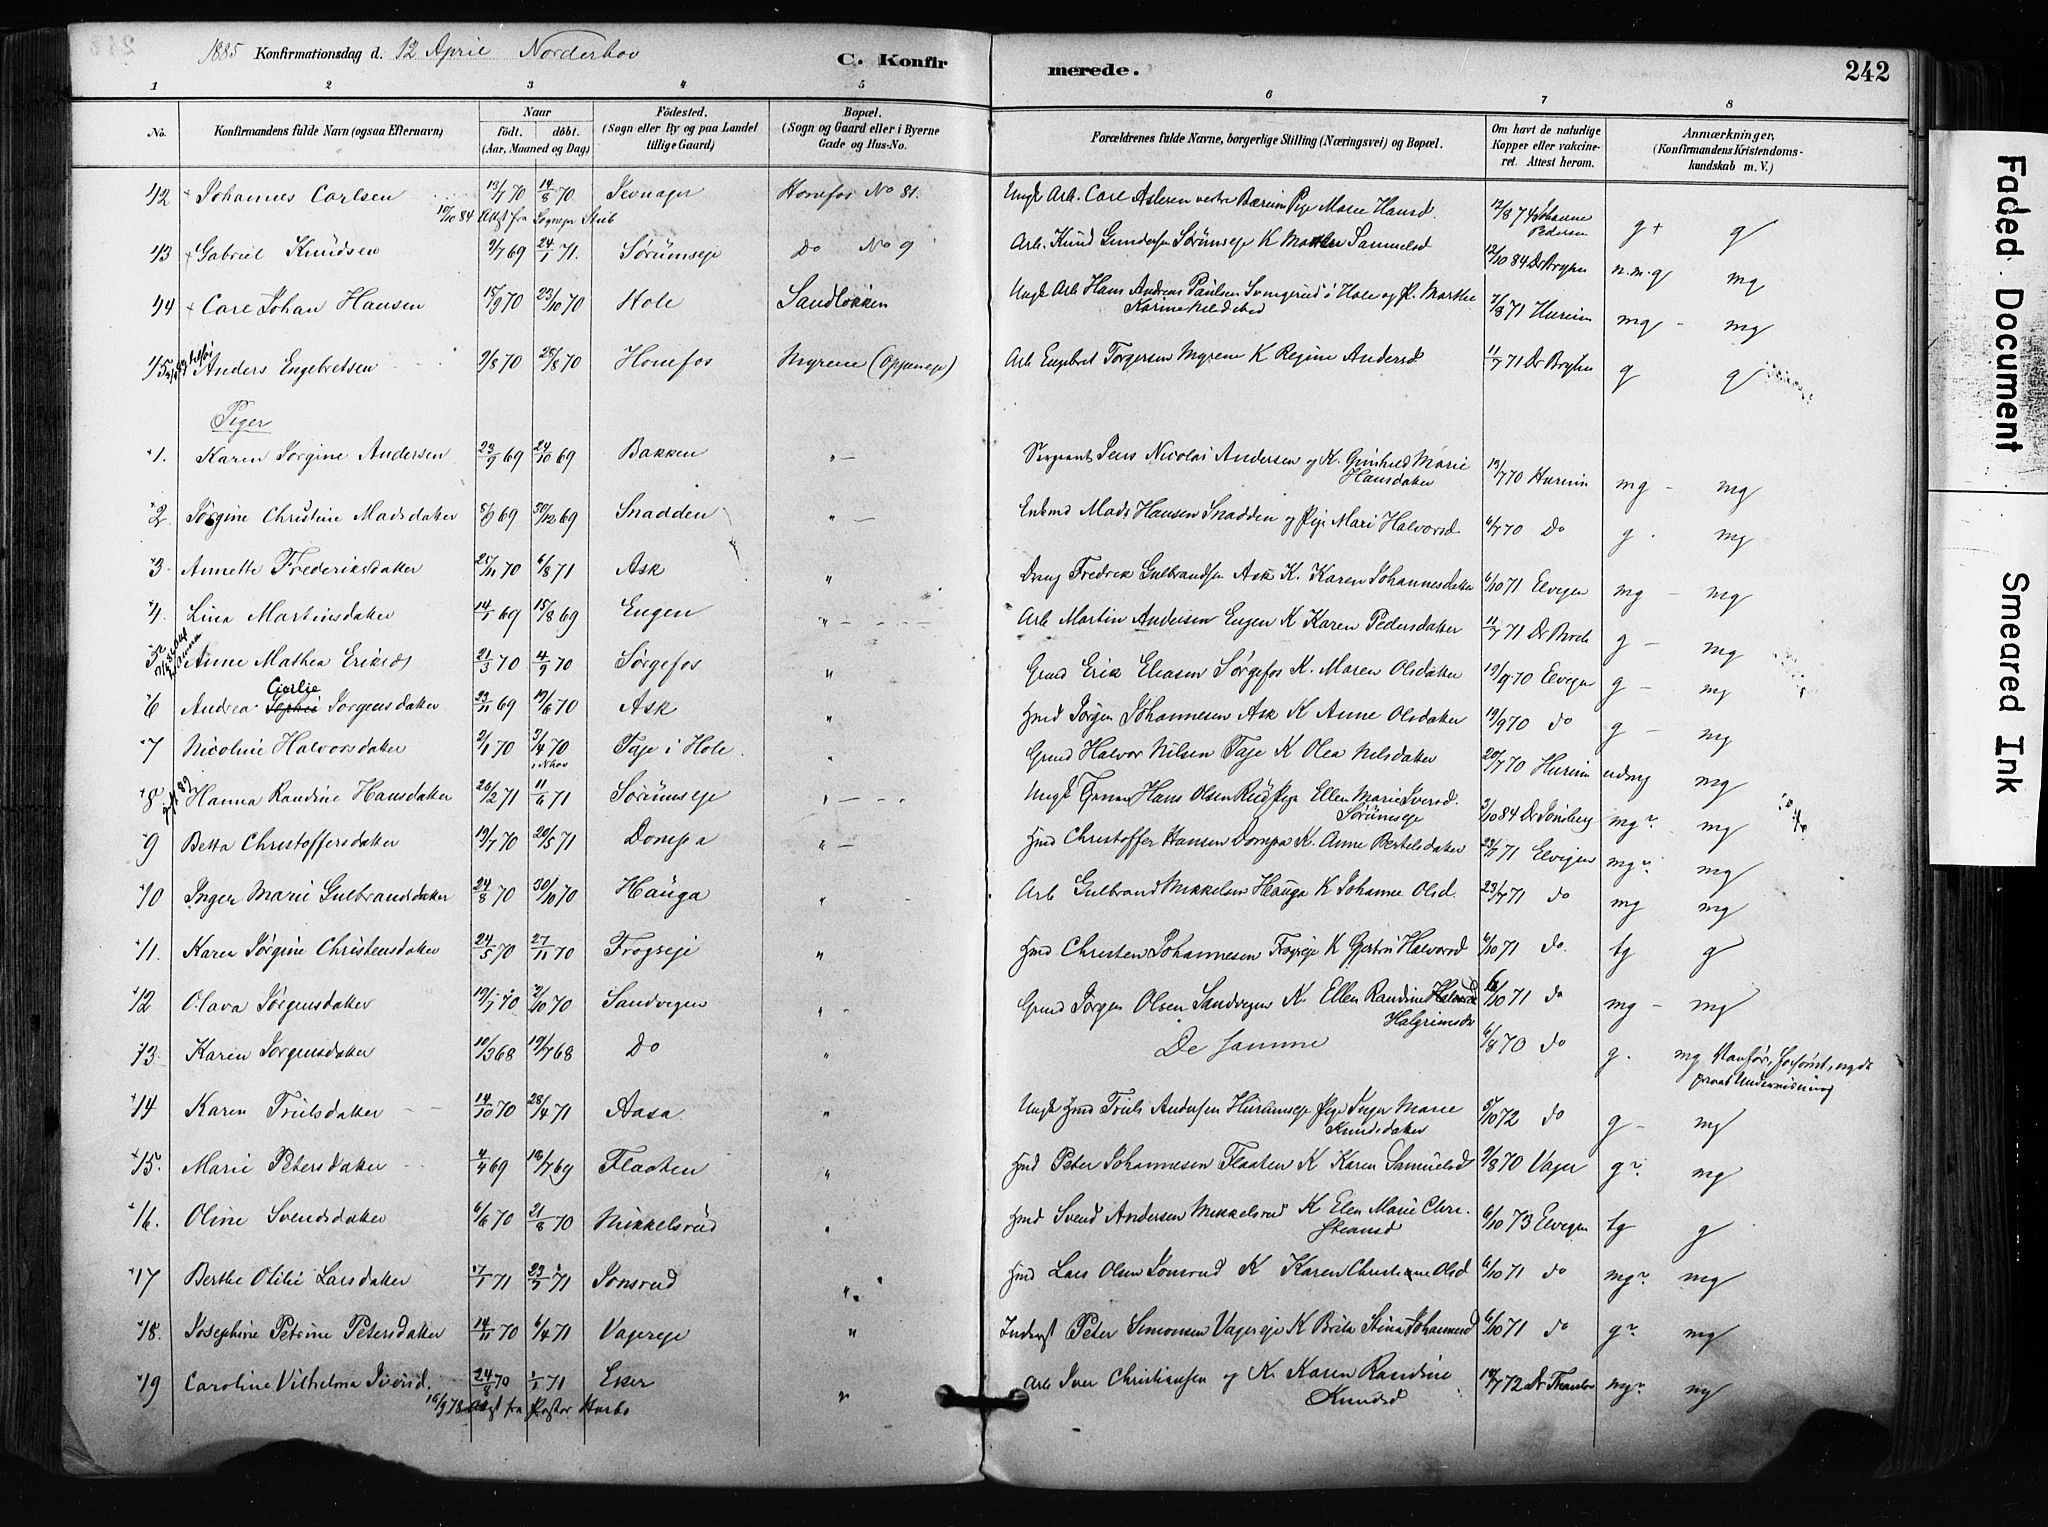 1885 Konfirmationsdag d. 12 April Norderhov
C. Konfirmerede.
242
1 2 3 4 5 6 7 8
No. Konfirmandens fulde Navn (ogsaa Efternavn) Naar født. døbt. (Aar, Maaned og Dag) Fødested. (Sogn eller By og paa Landet tillige Gaard) Bopæl. (Sogn og Gaard eller i Byerne Gade og Hus-No. Forældrenes fulde Navne, borgerlige Stilling (Næringsvei) og Bopæl. Om havt de naturlige Kopper eller vakcineret. Attest herom. Anmærkninger, (Konfirmandens Kristendomskundskab m. V.)
42 Johannes Carlsen 13/7 70 14/8 70 Jevnager Honefos No 81. Ungk Arb. Carl Aslesen vestre Bærum Pige Marie Hansd. 12/8 74 Johanne Pedersen g+ g
19/10 84 Attst fra Sogneprs
43 Gabriel Knudsen 9/7 69 24/1 71. Sørumseje Do No 9 Arb. Knud Gundersen Sørumseje K Marthe Samuelsd 12/10 84 n.m.g mg
44 Carl Johan Hansen 15/9 70 23/10 70 Hole Sandløkken Ungk Arb Hans Andreas Paulsen i Hole og P. Marthe Karine 7/8 71 Hurum mg - mg
45 Anders Engebretsen 9/8 70 28/8 70 Honefos Myrene (Oppeneje) Arb Engebret Torgersen Myrene K Regine Andersd 11/7 71 g g
Piger
1. Karen Jørgine Andersen 23/9 69 24/10 69 Bakken " — Sergeant Jens Nicolai Andersen og K. Gunhild Marie Hansdatter 19/7 70 Hurum mg - mg
2. Jørgine Christine Madsdatter 5/9 69 30/12 69 Snadden " — Enkmd Mads Hansen Snadden og Pige Mari Halvorsd 6/7 70 Do g. mg
3. Annette Frederiksdatter 25/11 70 6/8 71 Ask " Fredrik Gulbrandsen Ask K. Karen Johannesdatter 6/10 71 Elvigen mg - mg
4. Lina Martinsdatter 14/1 69 15/8 69 Engen " Arb Martin Andersen Engen K Karen Pedersdatter 11/7 71 g - mg
5 Anne Mathea Eriksd 21/3 70 4/9 70 Sørgefos " Grmd Erik Eliasen Sørgefos K. Maren Olsdatter 19/9 70 Elvigen g - mg
6 Andrea Carlie Jørgensdatter 23/11 69 19/6 70 Ask " Hmd Jørgen Johannesen Ask K Anne Olsdatter 19/9 70 do g - mg
7 Nicoline Halvorsdatter 2/1 70 3/4 70 i Nhov Fage i Hole " Grmd Halvor Nilsen Fage K Olea Nelsdatter 20/7 70 Hurum mg
8 Hanna Randine Hansdatter 26/2 71 11/6 71 Sørumseje " Ungk Hans Olsen Rud Pige Ellen Marie Iversd. Sørumseje 3/10 84 Dr mg? mg
9 Betta Christoffersdatter 19/7 70 20/5 71 Dompa " — Hmd Christoffer Hansen Dompa K. Anne Bertelsdatter 71 Elvigen mg? mg
10 Inger Marie Gulbrandsdatter 24/8 70 30/10 70 Hauga " Arb Gulbrand Mikkelsen Hauga K Johanne Olsd. 23/7 71 do mg mg
11. Karen Jørgine Christensdatter 24/5 70 27/11 70 Frogseje " Hmd Christen Johannesen Frogseje K Gjertru Halvorsd 6/10 71 do. tg g
12 Olava Jørgensdatter 19/7 70 2/10 70 Sandvegen " Grmd Jørgen Olsen Sandvegen K. Ellen Randine Halgrimsd 6/10 71 do mg - mg
13. Karen Jørgensdatter 10/3 68 19/7 68 Do " De samme 6/8 70 do g. mg privat Undervisning
14 Karen Trulsdatter 14/10 70 28/4 71 Aasa " Ungk Hmd Truls Andersen Hurumseje Pige Inger Marie Knudsdatter 5/10 72 do g - mg
15. Marie Petersdatter 4/4 69 18/7 69 Flaaten " Hmd Peter Johannesen Flaaten K Karen Samuelsd 9/8 70 Vager g? mg
16. Oline Svendsdatter 6/6 70 21/8 70 Mikkelsrud " Hmd Svend Andersen Mikkelsrud K Elen Marie Christiansd 6/10 73 Elvigen tg g
17 Berthe Otilie Larsdatter 17/1 71 23/7 71 Jonsrud " Hmd Lars Olsen Jonsrud K Karen Christiane Olsd 6/10 71 do mg? mg
18. Josephine Petrine Petersdatter 14/11 70 6/4 71 Vagereje " Inderst Peter Simonsen Vagereje K Brita Stina Johannesd 6/10 71 do g? mg
19 Caroline Vilhelma Iversd. 24/8 70 1/1 71 Eker " Arb Iver Christiansen og K. Karen Randine Knudsd 72 Dr mg? mg
16/9 78 Attst fra Pastor
Faded Document
Smeared Ink